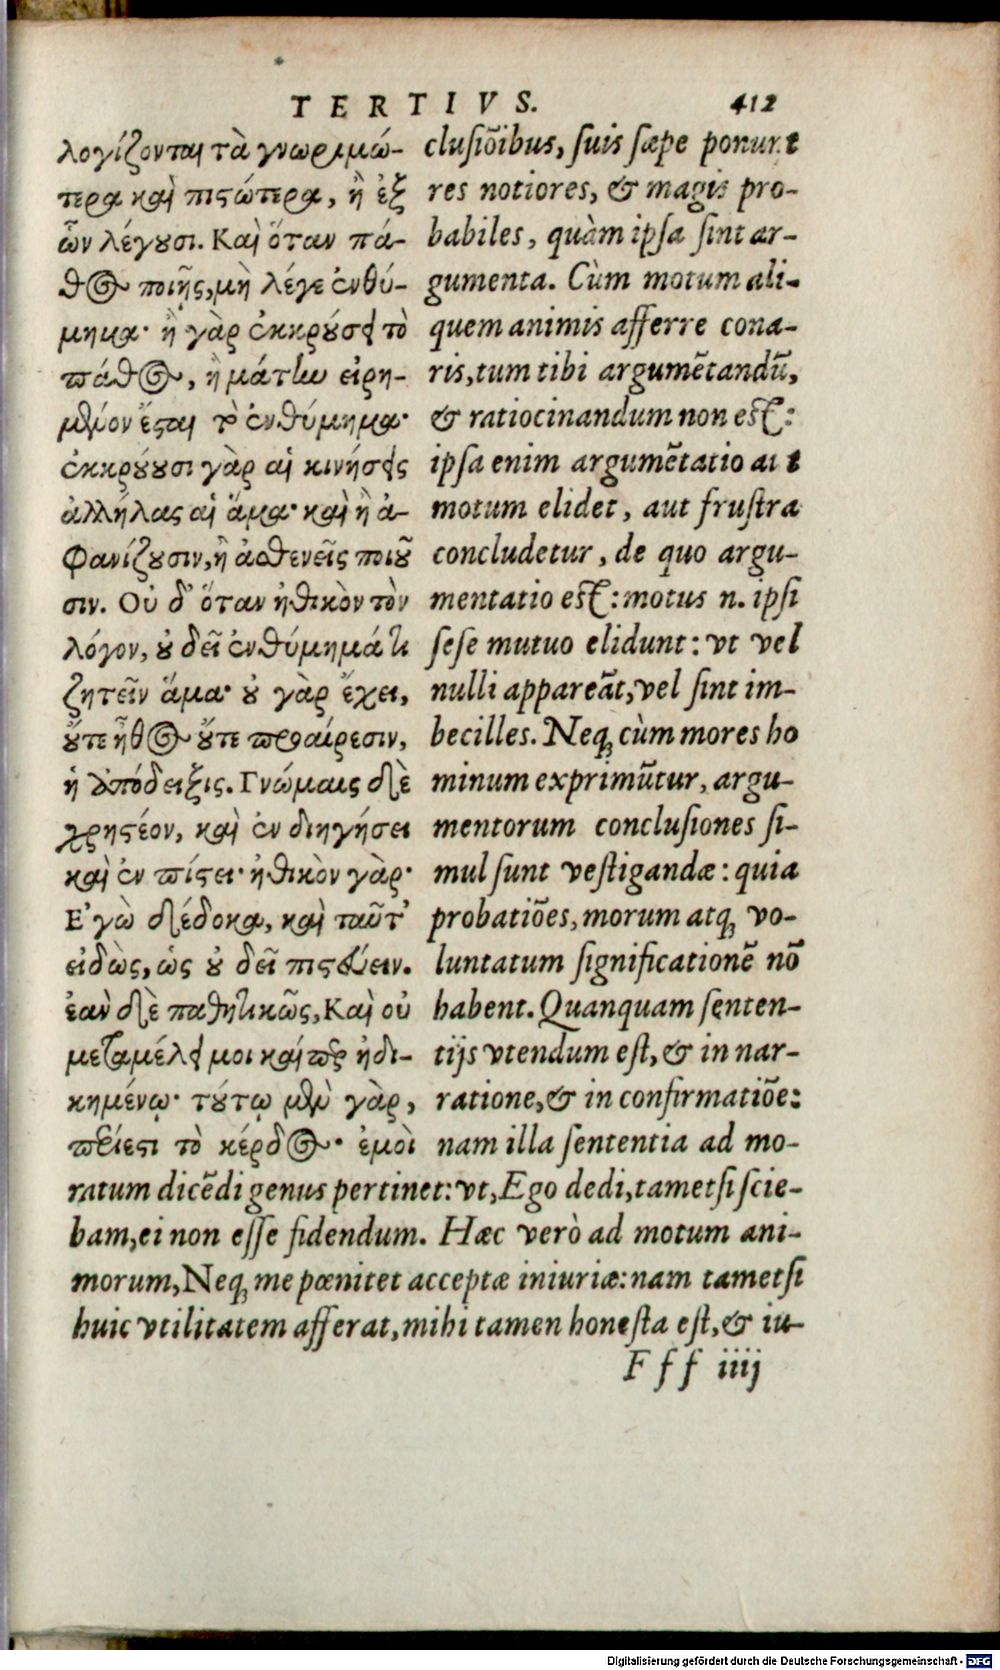 TERTIVS. 412
λογίζονται τὰ γνωριμώ-
τερα καὶ πιστότερα, ἢ ἐξ
ὧν λέγουσι. Καὶ ὅταν πά-
θος ποιῇς, μὴ λέγε ἐνθύ-
μημα· ἢ γὰρ ἐκκρούσει τὸ
πάθος, ἢ μάτην εἰρη-
μένον ἔσται τὸ ἐνθύμημα·
ἐκκρούουσι γὰρ αἱ κινήσεις
ἀλλήλας αἱ ἅμα· καὶ ἢ ἀ-
φανίζουσιν, ἢ ἀσθενεῖς ποιοῦ
σιν. Οὐ δ' ὅταν ἠθικὸν τὸν
λόγον, οὐ δεῖ ἐνθύμημά τι
ζητεῖν ἅμα· οὐ γὰρ ἔχει,
οὔτε ἦθος οὔτε προαίρεσιν,
ἡ ἀπόδειξις. Γνώμαις δὲ
χρηστέον, καὶ ἐν διηγήσει
καὶ ἐν πίστει· ἠθικὸν γάρ·
Ε᾿γὼ δέδοκα, καὶ ταῦτ'
εἰδὼς, ὡς οὐ δεῖ πιστεύειν.
ἐὰν δὲ παθητικῶς, Καὶ οὐ
μεταμέλει μοι καίπερ ἠδι-
κημένῳ· τούτῳ μὲν γὰρ,
περίεστι τὸ κέρδος· ἐμοὶ
clusiõibus, suis sæpe ponunt
res notiores, & magis pro-
babiles, quàm ipsa sint ar-
gumenta. Cùm motum ali-
quem animis afferre cona-
ris, tum tibi argumẽtandũ,
& ratiocinandum non est:
ipsa enim argumẽtatio aut
motum elidet, aut frustra
concludetur, de quo argu-
mentatio est: motus n. ipsi
sese mutuo elidunt: vt vel
nulli appareãt, vel sint im-
becilles. Neq; cùm mores ho
minum exprimũtur, argu-
mentorum conclusiones si-
mul sunt vestigandæ: quia
probatiões, morum atq; vo-
luntatum significationẽ nõ
habent. Quanquam senten-
tijs vtendum est, & in nar-
ratione, & in confirmatiõe:
nam illa sententia ad mo-
ratum dicẽdi genus pertinet: vt, Ego dedi, tametsi scie-
bam, ei non esse fidendum. Hæc verò ad motum ani-
morum, Neq; me pœnitet acceptæ iniuriæ: nam tametsi
huic vtilitatem afferat, mihi tamen honesta est, & iu-
Fff iiij
Digitalisierung gefördert durch die Deutsche Forschungsgemeinschaft - DFG